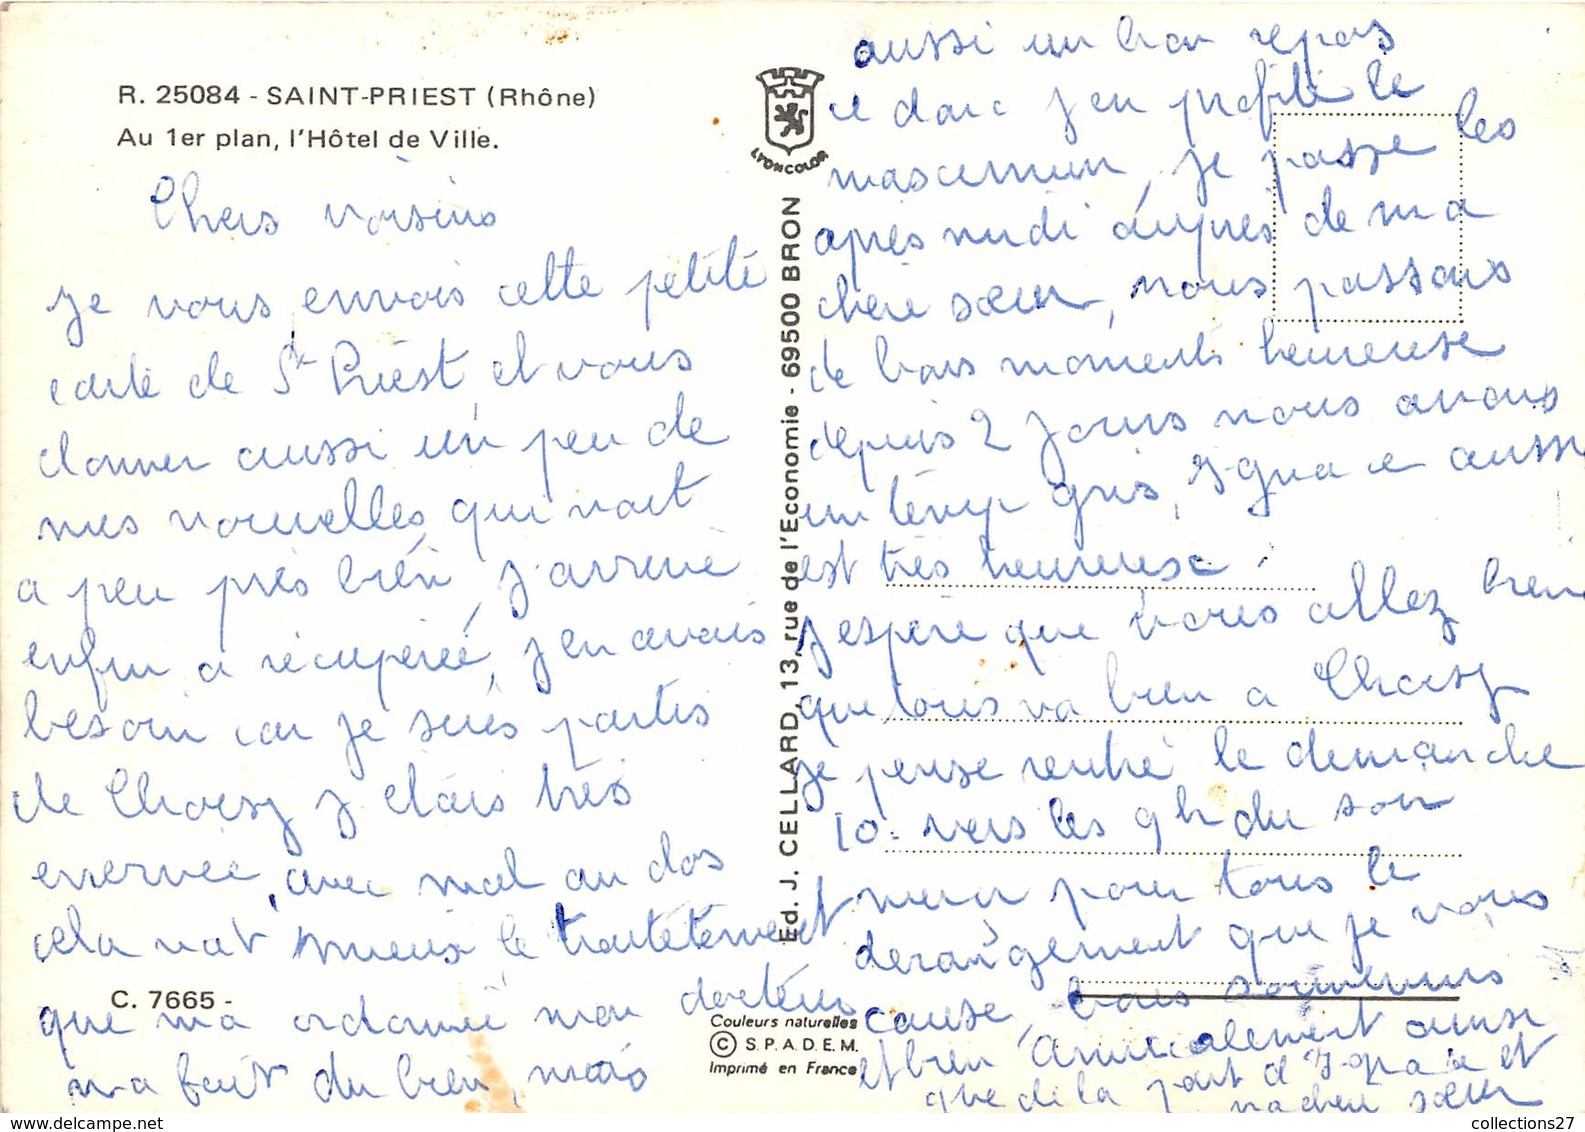 R. 25084 - SAINT-PRIEST (Rhône)
Au 1er plan, l'Hôtel de Ville.
Chers voisins
je vous envois cette petite
carte de St Priest, et vous
donner aussi un peu de
mes nouvelles, qui vont
a peu près bien, j'arrive
enfin a récupérée, j'en avais
besoin car je suis partis
de Choisy j'etais très
enervée, avec mal au dos
cela vat mieux, le traitetement
que m'a ordonnée mon docteur
m'a fait du bien, mais
C. 7665 -
LYONCOLOR
Ed. J. CELLARD, 13, rue de l'Economie - 69500 BRON
Couleurs naturelles
© S.P.A.D.E.M.
Imprimé en France
aussi un bon repos
donc j'en profite le
je passe les
après midi auprès de ma
chère sœur, nous passons
de bons moments heureuse
depuis 2 jours nous avons
un temp gris, aussi
est très heureuse.
j'espère que vous allez bien
que tous va bien a Choisy
je pense rentré le demanche
10 vers les 9h du soir
merci pour tous le
derangement que je vous
cause, bons souvenirs
et bien Amicalement ainsi
que de la part d' et
ma cheri sœur
collections27